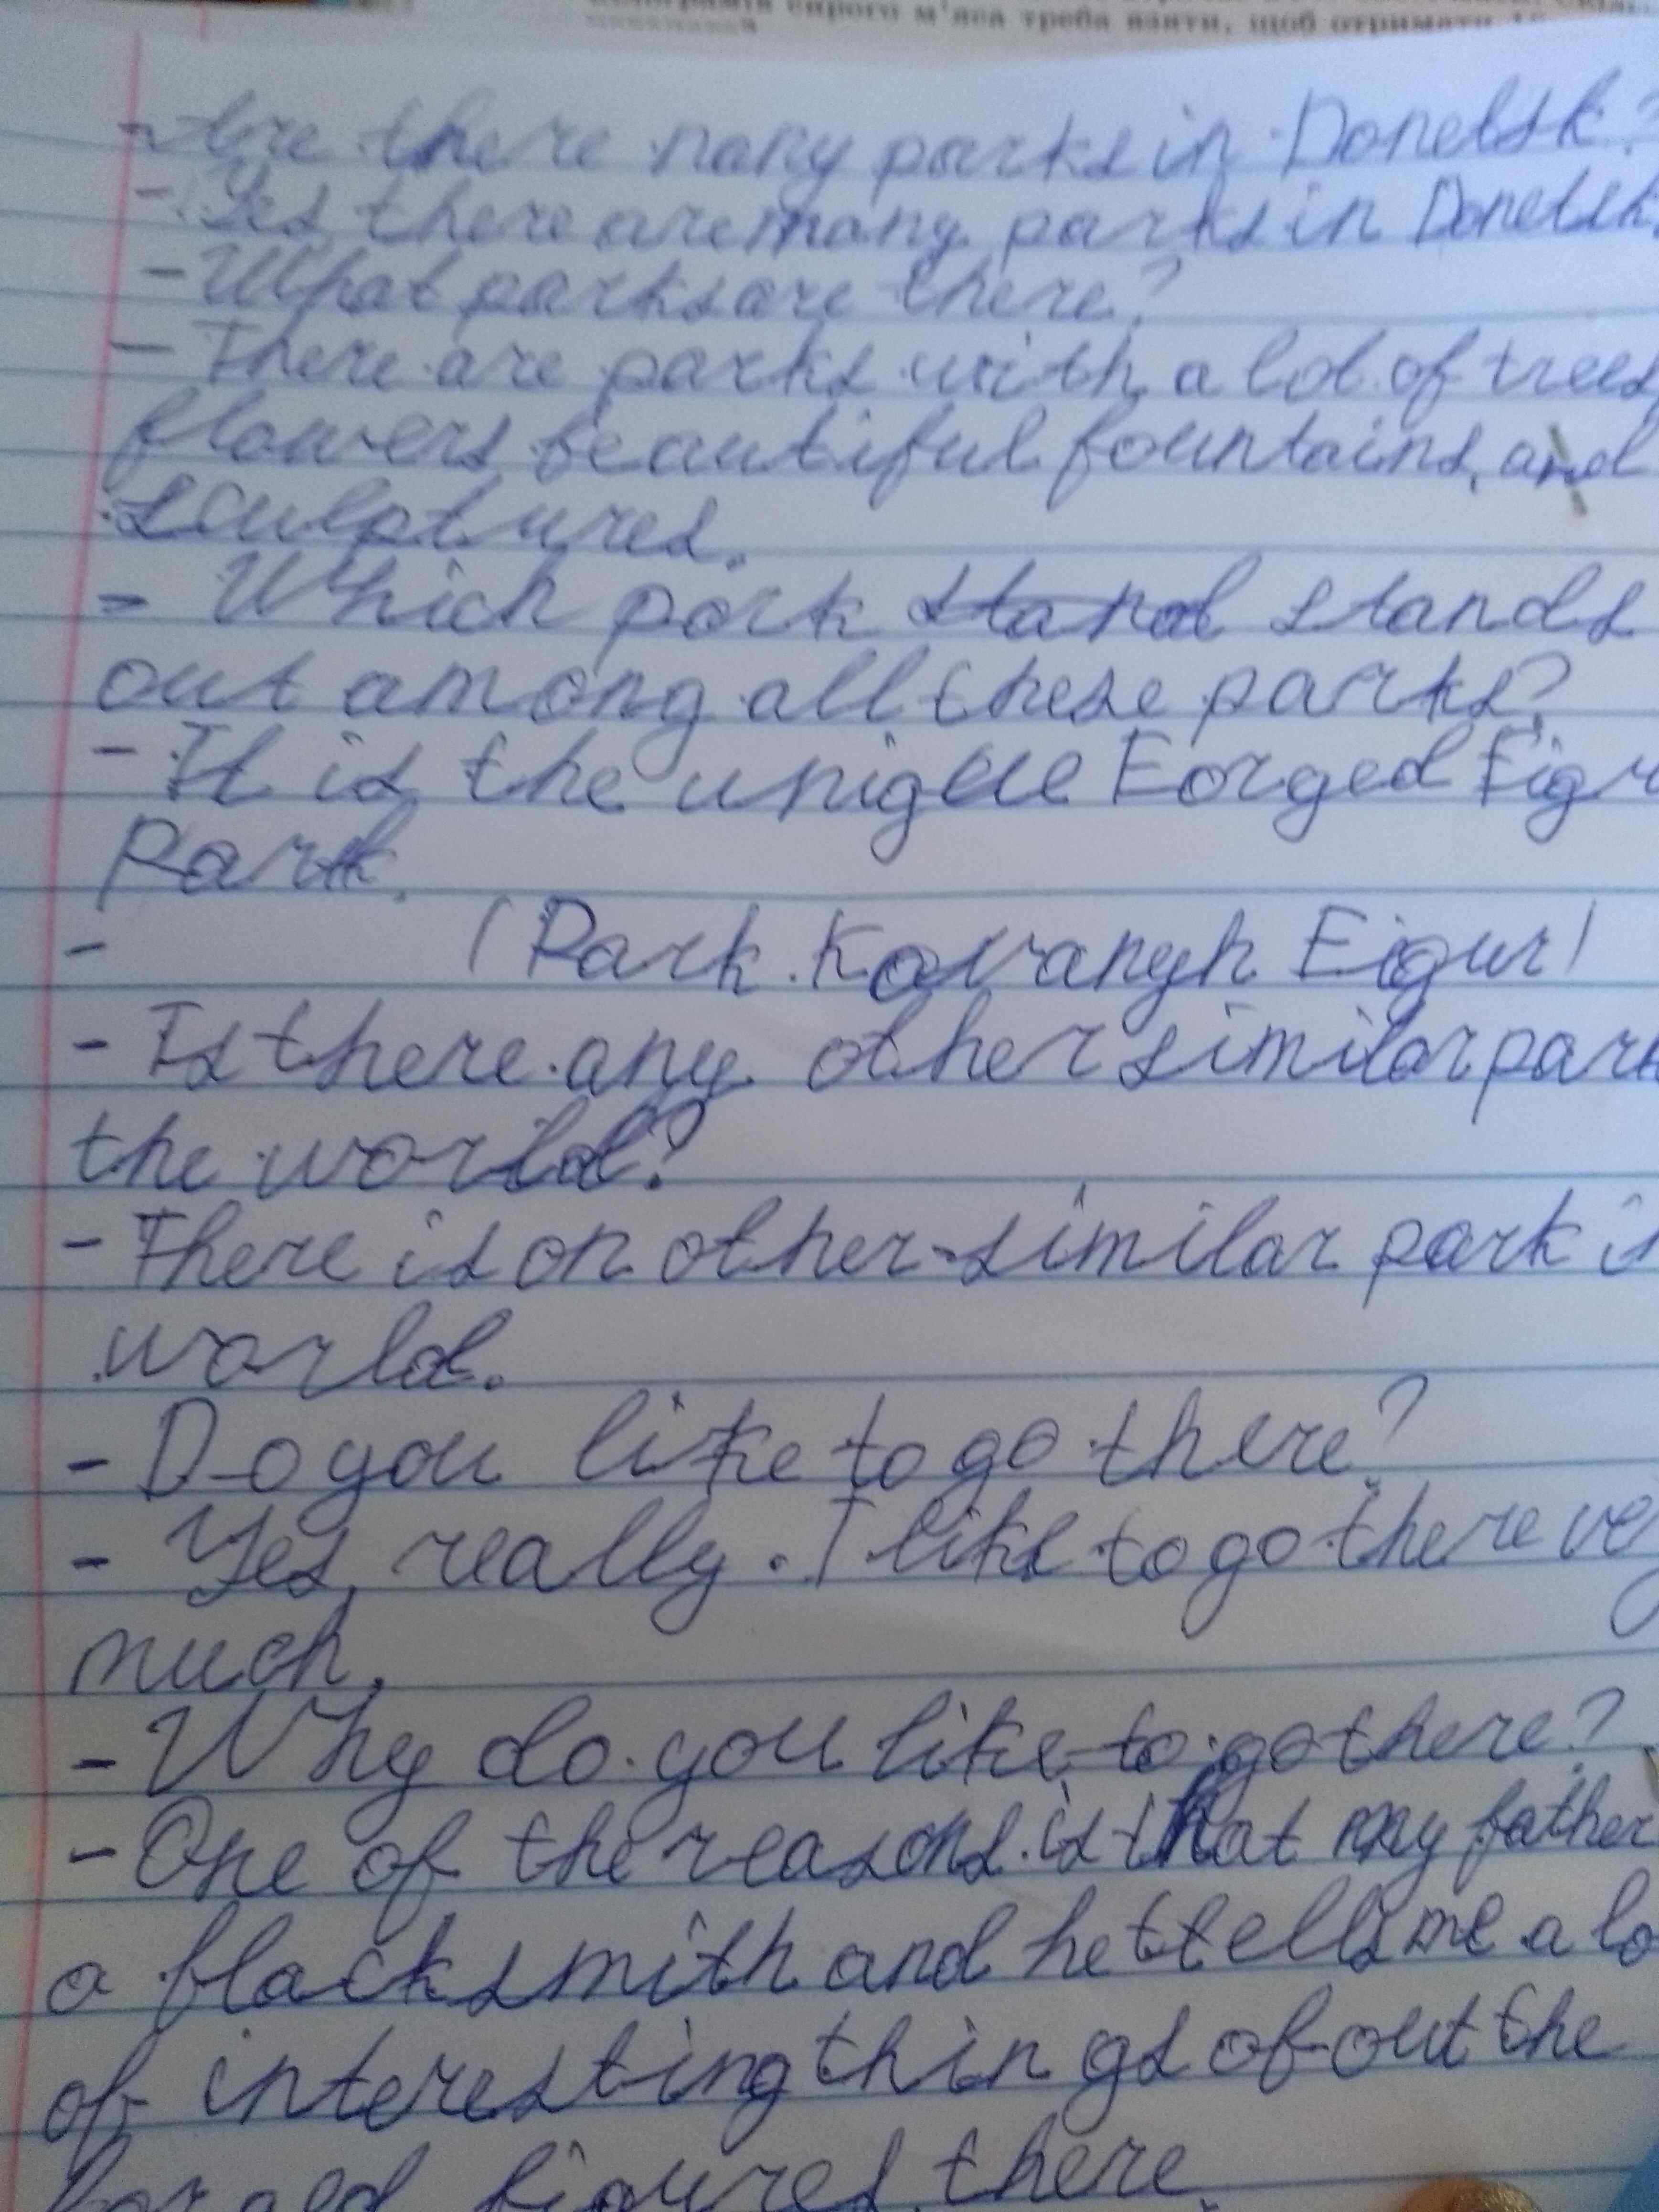 сирого м'яса треба взяти, щоб отримати
- Are there many parks in Donetsk?
- Yes there are many parks in Donetsk.
- What parks are there?
- There are parks with a lot of trees,
flowers, beautiful fountains, and
sculptures.
- Which park stand stands
out among all these parks?
- It is the unique Forged Figu
Park.
- (Park Kovanyh Figur)
- Is there any other similar park
the world?
- There is on other similar park in
world.
- Do you like to go there?
- Yes, really. I like to go there ve
much.
- Why do you like to go there?
- One of the reasons is that my father
a blacksmith and he ttells me a lo
of interesting things about the
forged figures there.